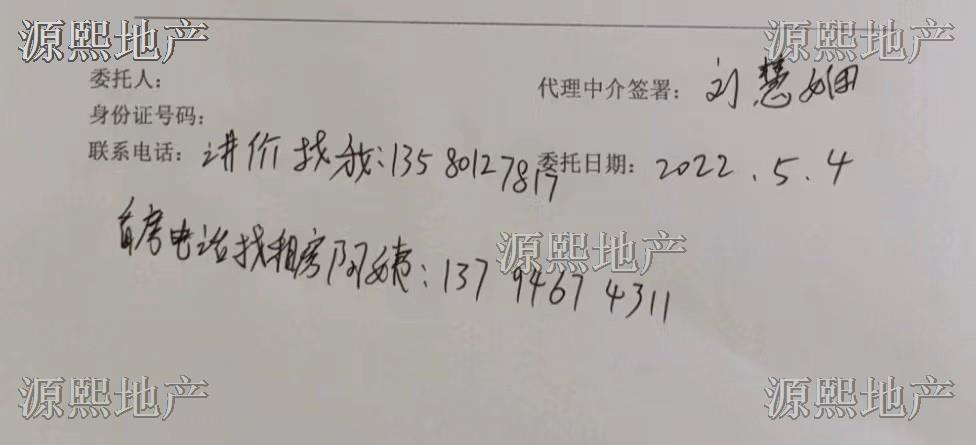 源熙地产 源熙地产
委托人: 代理中介签署: 刘慧
身份证号码:
联系电话: 讲价找我:13580127817 委托日期: 2022.5.4
看房电话找租房阿姨:13794674311
源熙地产
源熙地产 源熙地产